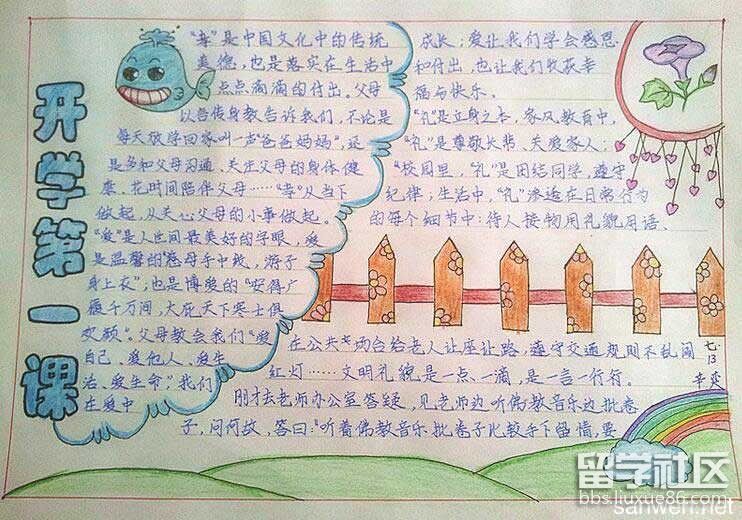 开学第一课
"孝"是中国文化中的传统
美德，也是落实在生活中
点点滴滴的付出。父母
以言传身教告诉我们，不论是
每天放学回家叫一声"爸爸妈妈"，还
是多和父母沟通、关注父母的身体健
康、花时间陪伴父母……"孝"从当下
做起，从关心父母的小事做起。
"爱"是人世间最美好的字眼，爱
是温馨的"慈母手中线，游子
身上衣"，也是博爱的"安得广
厦千万间，大庇天下寒士俱
欢颜"。父母教会我们"爱
自己、爱他人、爱生
活、爱生命"，我们
在爱中
成长；爱让我们学会感恩
和付出，也让我们收获幸
福与快乐。
"礼"是立身之本，家风教育中，
"礼"是尊敬长辈、关爱家人；
"校园里，"礼"是团结同学，遵守
纪律；生活中，"礼"渗透在日常行为
的每个细节中：待人接物用礼貌用语、
在公共场台给老人让座让路，遵守交通规则不乱闯
红灯……文明礼貌是一点一滴，是一言一行行。
刚才去老师办公室答疑，见老师边听佛教音乐边批卷
子，问何故，答曰："听着佛教音乐批卷子比较手下留情，要
七.13
留学社区
bbs.liuxue86.com
sanwen.net